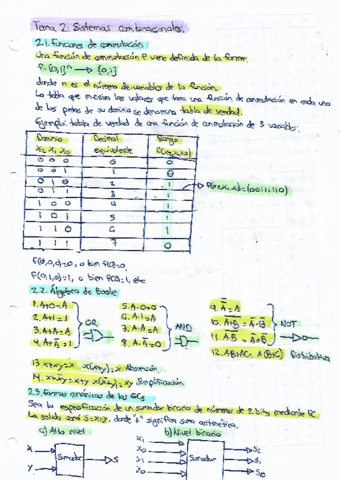 Tema 2. Sistemas combinacionales.
2.1. Funciones de conmutación
Una función de conmutación F viene definida de la forma:
F: {0,1}ⁿ → {0,1}
donde n es el número de variables de la función.
La tabla que muestra los valores que toma una función de conmutación en cada uno
de los puntos de su dominio se denomina tabla de verdad.
Ejemplo: tabla de verdad de una función de conmutación de 3 variables:
Dominio Decimal Rango
x₂ x₁ x₀ equivalente f(x₂,x₁,x₀)
0 0 0 0 0
0 0 1 1 0
0 1 0 2 1
0 1 1 3 1
1 0 0 4 1
1 0 1 5 1
1 1 0 6 1
1 1 1 7 0
f(0,0,0)=0, o bien f(0)=0
f(0,1,0)=1, o bien f(2)=1, etc
2.2. Álgebra de Boole
1. A+0=A 5. A·0=0 9. A̿=A
2. A+1=1 6. A·1=A
3. A+A=A OR 7. A·A=A AND NOT
4. A+A̅=1 8. A·A̅=0
12. AB+AC=A(B+C) Distributiva
13. x+xy=x x(x+y)=x Absorción
Simplificación
2.3. Formas canónicas de las FCs
Sea la especificación de un sumador binario de números de 2 bits mediante FC
La salida será S=X+Y, donde "+" significa suma aritmética.
a) Alto nivel b) Nivel binario
X Sumador S
Y
x₁ Sumador S₂
x₀ S₁
y₁ S₀
y₀